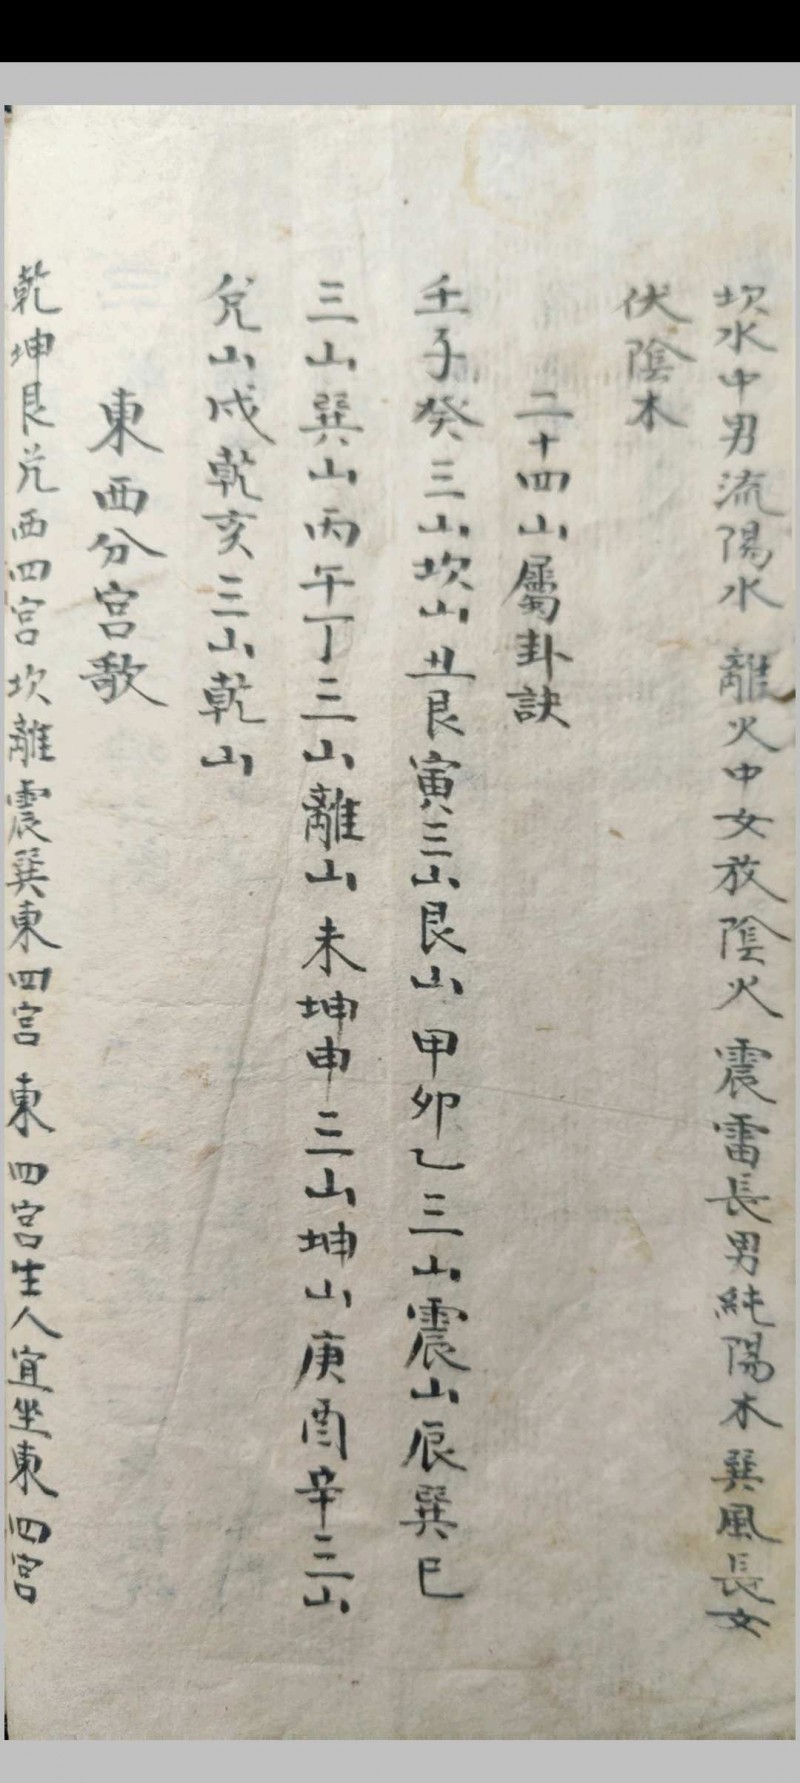 坎水中男流陽水 離火中女放陰火 震雷長男純陽木 巽風長女
伏陰木
二十四山屬卦訣
壬子癸三山坎山丑艮寅三山艮山甲卯乙三山震山辰巽巳
三山巽山丙午丁三山離山未坤申三山坤山庚酉辛三山
兌山戌乾亥三山乾山
東西分宮歌
乾坤艮兌西四宮坎離震巽東四宮東四宮生人宜坐東四宮